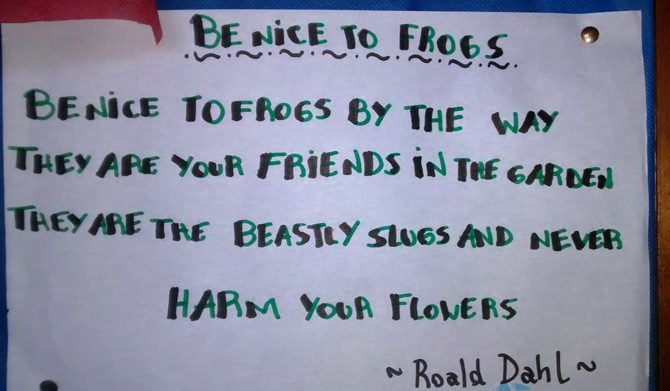 BE NiCE TO FROGS
BE NiCE TO FROGS BY THE WAY
THEY ARE YOUR FRiENDS iN THE GARDEN
THEY ARE THE BEASTLY SLUGS AND NEVER
HARM YOUR FLOWERS
~ Roald Dahl ~